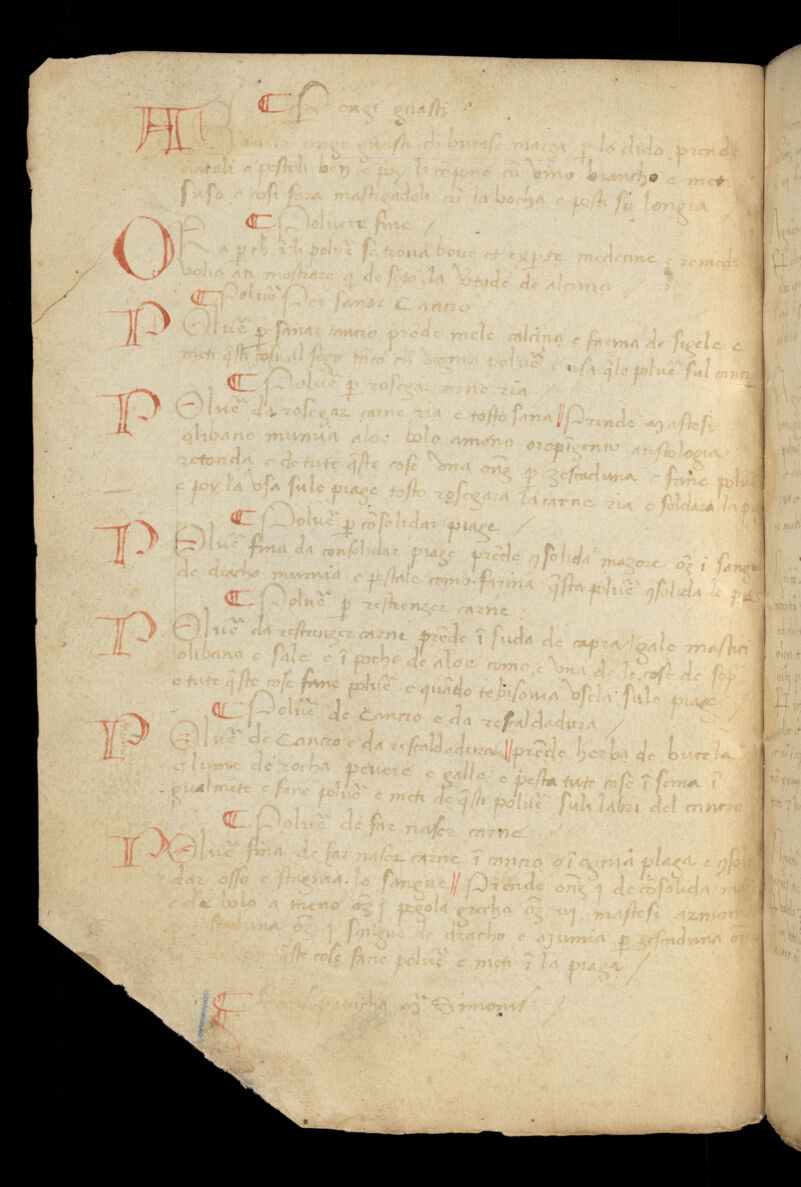 ¶ Per ongi guasti
A guarir ongi guasti ch butase marza p la dido prende
datali e pesteli ben e poy li cõpone cũ vino biancho e meti
suso e cosi fara mastigadeli cũ la bocha e posti sũ longia
¶ Polvere fine /
ORa p ch ĩ li polvẽ se trova bone et experte medecine e remedi
volio ati mostrare q de soto la vtude de alcuna / .
¶ Polvẽ Per sanar Cancro
POlvẽ p sanar cancro prẽde mele calcina e farina de sigele e
meti q̃sti cosi al fogo tãto ch vegnia polvẽ e usa q̃le polvẽ sul cancro
¶ Polvẽ p rosegar carne ria
POlvẽ da rosegar carne ria e tosto sana // Prende mastesi
olibano mumia aloe bolo ameno oropigento aristologia
retonda e de tute q̃ste cose una onz p zescaduna e fane polvẽ
e poy la usa sule piage tosto rosegara la carne ria e soldara la
¶ Polvẽ p cõsolidar piage /
POlvẽ fina da consolidar piage prẽde 9solida mazore oz i sangue
de dracho mumia e pestale como farina q̃sta polvẽ 9solida le piage
¶ Polvẽ p restrenzer carne
POlvẽ da restrenzer carne prẽde ĩ suda de capra gale mastici
olibano e sale e ĩ pocho de aloe como e una de le cose de sop
e tute q̃ste cose fane polvẽ e quãdo te bisonia usela sule piage /
¶ Polvẽ de Cancro e da rescaldadura /
POlvẽ de Cancro e da rescaldadura // prẽde herba de bucela
e lume de rocha pevere e galle e pesta tute cose ĩ sema ĩ
gualmẽte e fane polvẽ e meti de q̃sti polvẽ suli labri del cancro
¶ Polvẽ de far naser carne
POlvẽ fina de far naser carne ĩ cancro o ĩ ognia plaga e 9soli
dar osso e stagnia lo sangue // Prende onz i de cõsolida
e de bolo ameno oz i pegola grecha oz vi mastesi
zescaduna oz i sangue de dracho e mumia p zescaduna
q̃ste cose fane polvẽ e meti ĩ la piaga /
¶ Simonis /